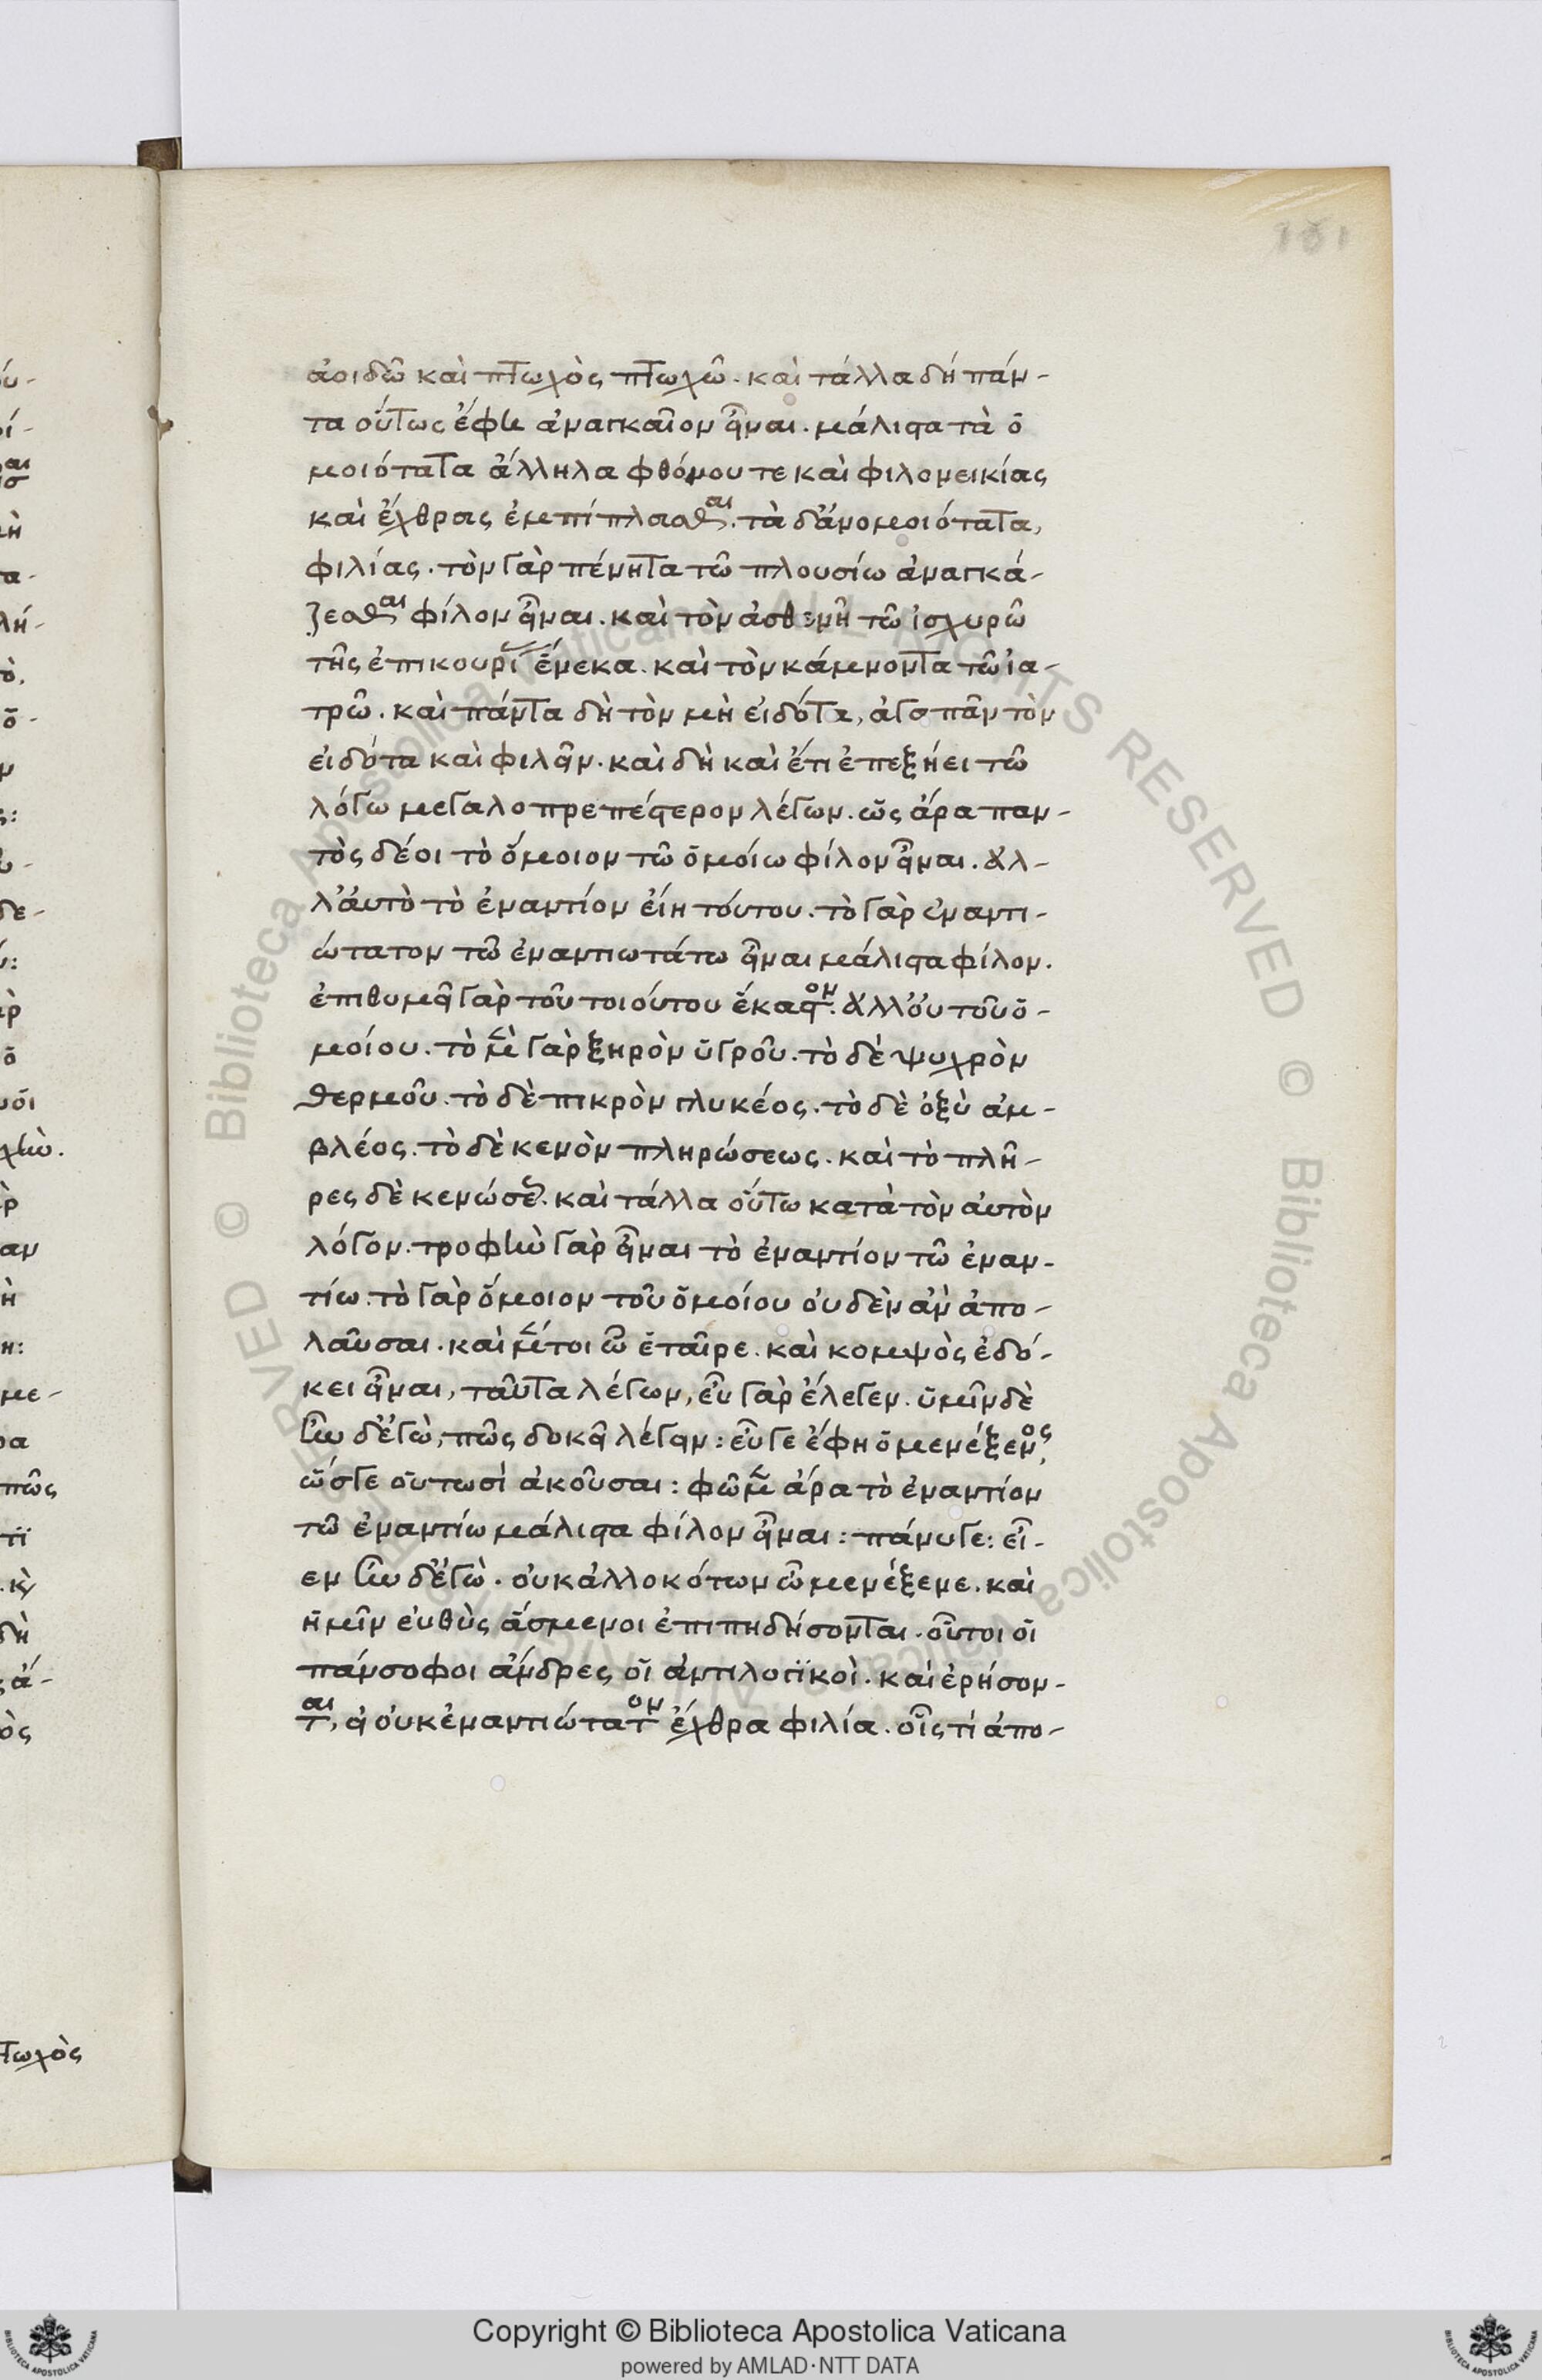 ἀοιδῶ καὶ πτωχὸς πτωχῶ. καὶ τάλλα δή πάν-
τα οὕτως ἔφη ἀναγκαῖον εἶναι. μάλιστα τὰ ὁ
μοιότατα ἄλληλα φθόνου τε καὶ φιλονεικίας
καὶ ἔχθρας ἐμπίπλασθαι. τὰ δ' ἀνομοιότατα,
φιλίας. τὸν γὰρ πένητα τῶ πλουσίω ἀναγκά-
ζεσθαι φίλον εἶναι. καὶ τὸν ἀσθενῆ τῶ ἰσχυρῶ
τῆς ἐπικουρίας ἕνεκα. καὶ τὸν κάμνοντα τῶ ἰα-
τρῶ. καὶ πάντα δὴ τὸν μὴ εἰδότα, ἀγαπᾶν τὸν
εἰδότα καὶ φιλεῖν. καὶ δὴ καὶ ἔτι ἐπεξήει τῶ
λόγω μεγαλοπρεπέστερον λέγων. ὡς ἄρα παν-
τὸς δέοι τὸ ὅμοιον τῶ ὁμοίω φίλον εἶναι. ἀλ-
λ' αὐτὸ τὸ ἐναντίον εἴη τούτου. τὸ γὰρ ἐναντι-
ώτατον τῶ ἐναντιωτάτω εἶναι μάλιστα φίλον.
ἐπιθυμεῖ γὰρ τοῦ τοιούτου ἕκαστον. ἀλλ' οὐ τοῦ ὁ-
μοίου. τὸ μὲν γὰρ ξηρὸν ὑγροῦ. τὸ δὲ ψυχρὸν
θερμοῦ. τὸ δὲ πικρὸν γλυκέος. τὸ δὲ ὀξὺ ἀμ-
βλέος. τὸ δὲ κενὸν πληρώσεως. καὶ τὸ πλῆ-
ρες δὲ κενώσεως. καὶ τάλλα οὕτω κατὰ τὸν αὐτὸν
λόγον. τροφὴν γὰρ εἶναι τὸ ἐναντίον τῶ ἐναν-
τίω. τὸ γὰρ ὅμοιον τοῦ ὁμοίου οὐδὲν ἂν ἀπο-
λαῦσαι. καὶ μέντοι ὦ ἑταῖρε. καὶ κομψὸς ἐδό-
κει εἶναι, ταῦτα λέγων, εὖ γὰρ ἔλεγεν. ὑμῖν δὲ
ἦν δ' ἐγὼ, πῶς δοκεῖ λέγειν: εὖ γε ἔφη ὁ μενέξενος,
ὥστε οὑτωσὶ ἀκοῦσαι: φῶμεν ἄρα τὸ ἐναντίον
τῶ ἐναντίω μάλιστα φίλον εἶναι: πάνυ γε: εἶ-
εν ἦν δ' ἐγὼ. οὐκ ἀλλοκότων ὦ μενέξενε. καὶ
ἡμῖν εὐθὺς ἄσμενοι ἐπιπηδήσονται. οὗτοι οἱ
πάνσοφοι ἄνδρες οἱ ἀντιλογϊκοὶ. καὶ ἐρήσον-
ται, εἰ οὐκ ἐναντιώτατον ἔχθρα φιλία. οἷς τί ἀπο-